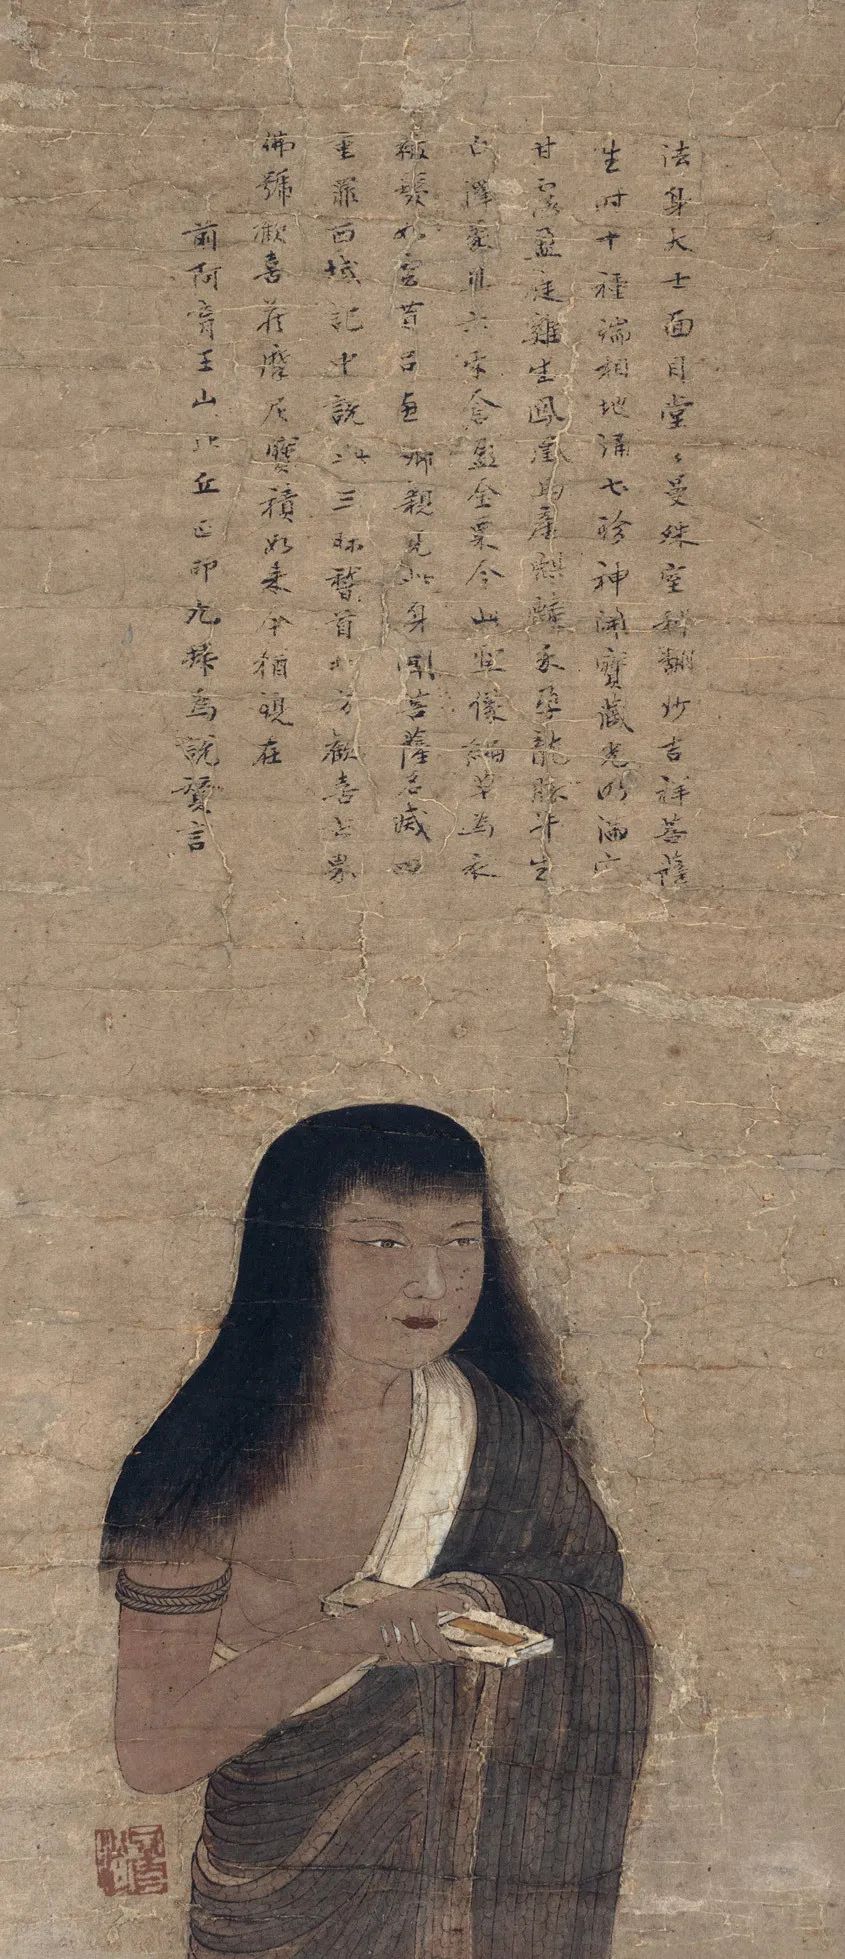 法身大士面目堂々曼殊室利翻妙吉祥菩薩
生時十種瑞相地涌七珍神開寶藏光明滿室
甘露盈庭雞生鳳凰馬産騏驎豕孕龍豚牛生
白澤象具六牙倉盈金粟今此聖像編草為衣
被髮如雲昔呂惠卿親見此身聞菩薩名滅四
重罪西域記中說此三昧稽首北方歡喜世界
佛號歡喜藏摩尼寶積如来今猶現在
前阿育王山比丘正印九拜為說贊言